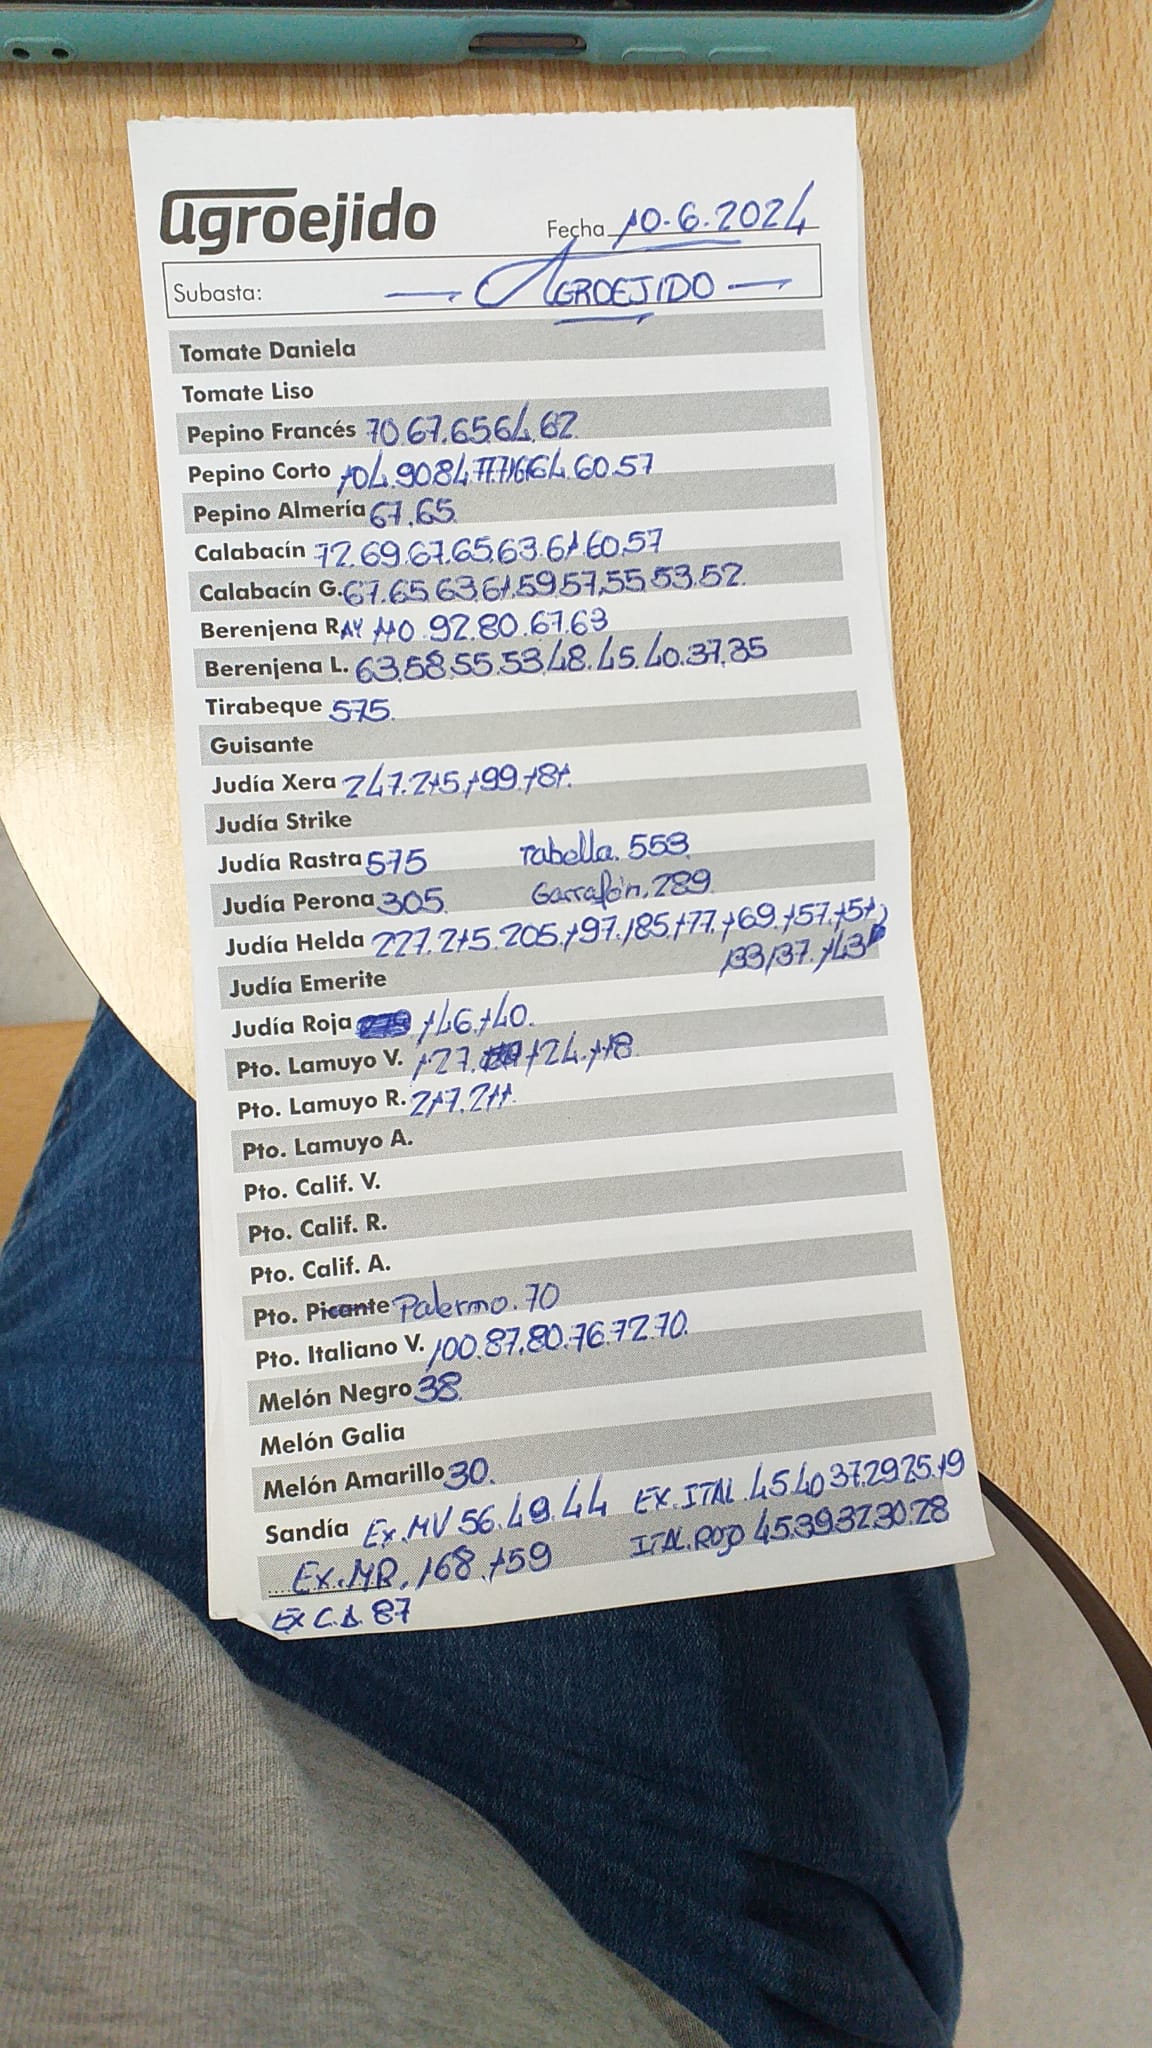 agroejido
Fecha 10.6.2024
Subasta: — AGROEJIDO —
Tomate Daniela
Tomate Liso
Pepino Francés 70.67.65.64.62
Pepino Corto 104.90.84.77.71.66.64.60.57
Pepino Almería 67.65
Calabacín 72.69.67.65.63.61.60.57
Calabacín G. 67.65.63.61.59.57.55.53.52
Berenjena RAY 110.92.80.67.63
Berenjena L. 63.58.55.53.48.45.40.37.35
Tirabeque 575
Guisante
Judía Xera 247.215.199.181.
Judía Strike
Judía Rastra 575 Tabella. 553
Judía Perona 305 Garrafón. 289
Judía Helda 227.215.205.197.185.177.169.157.151
133/137.143
Judía Emerite
Judía Roja 146.140.
Pto. Lamuyo V. 127. 124.118
Pto. Lamuyo R. 217.211
Pto. Lamuyo A.
Pto. Calif. V.
Pto. Calif. R.
Pto. Calif. A.
Pto. Picante Palermo. 70
Pto. Italiano V. 100.87.80.76.72.70.
Melón Negro 38
Melón Galia
Melón Amarillo 30.
Sandía Ex.MV 56.49.44 EX.ITAL.45.40.37.29.25.19
Ex.MR. 168.159 ITAL.ROJO 45.39.32.30.28
EX C.D. 87